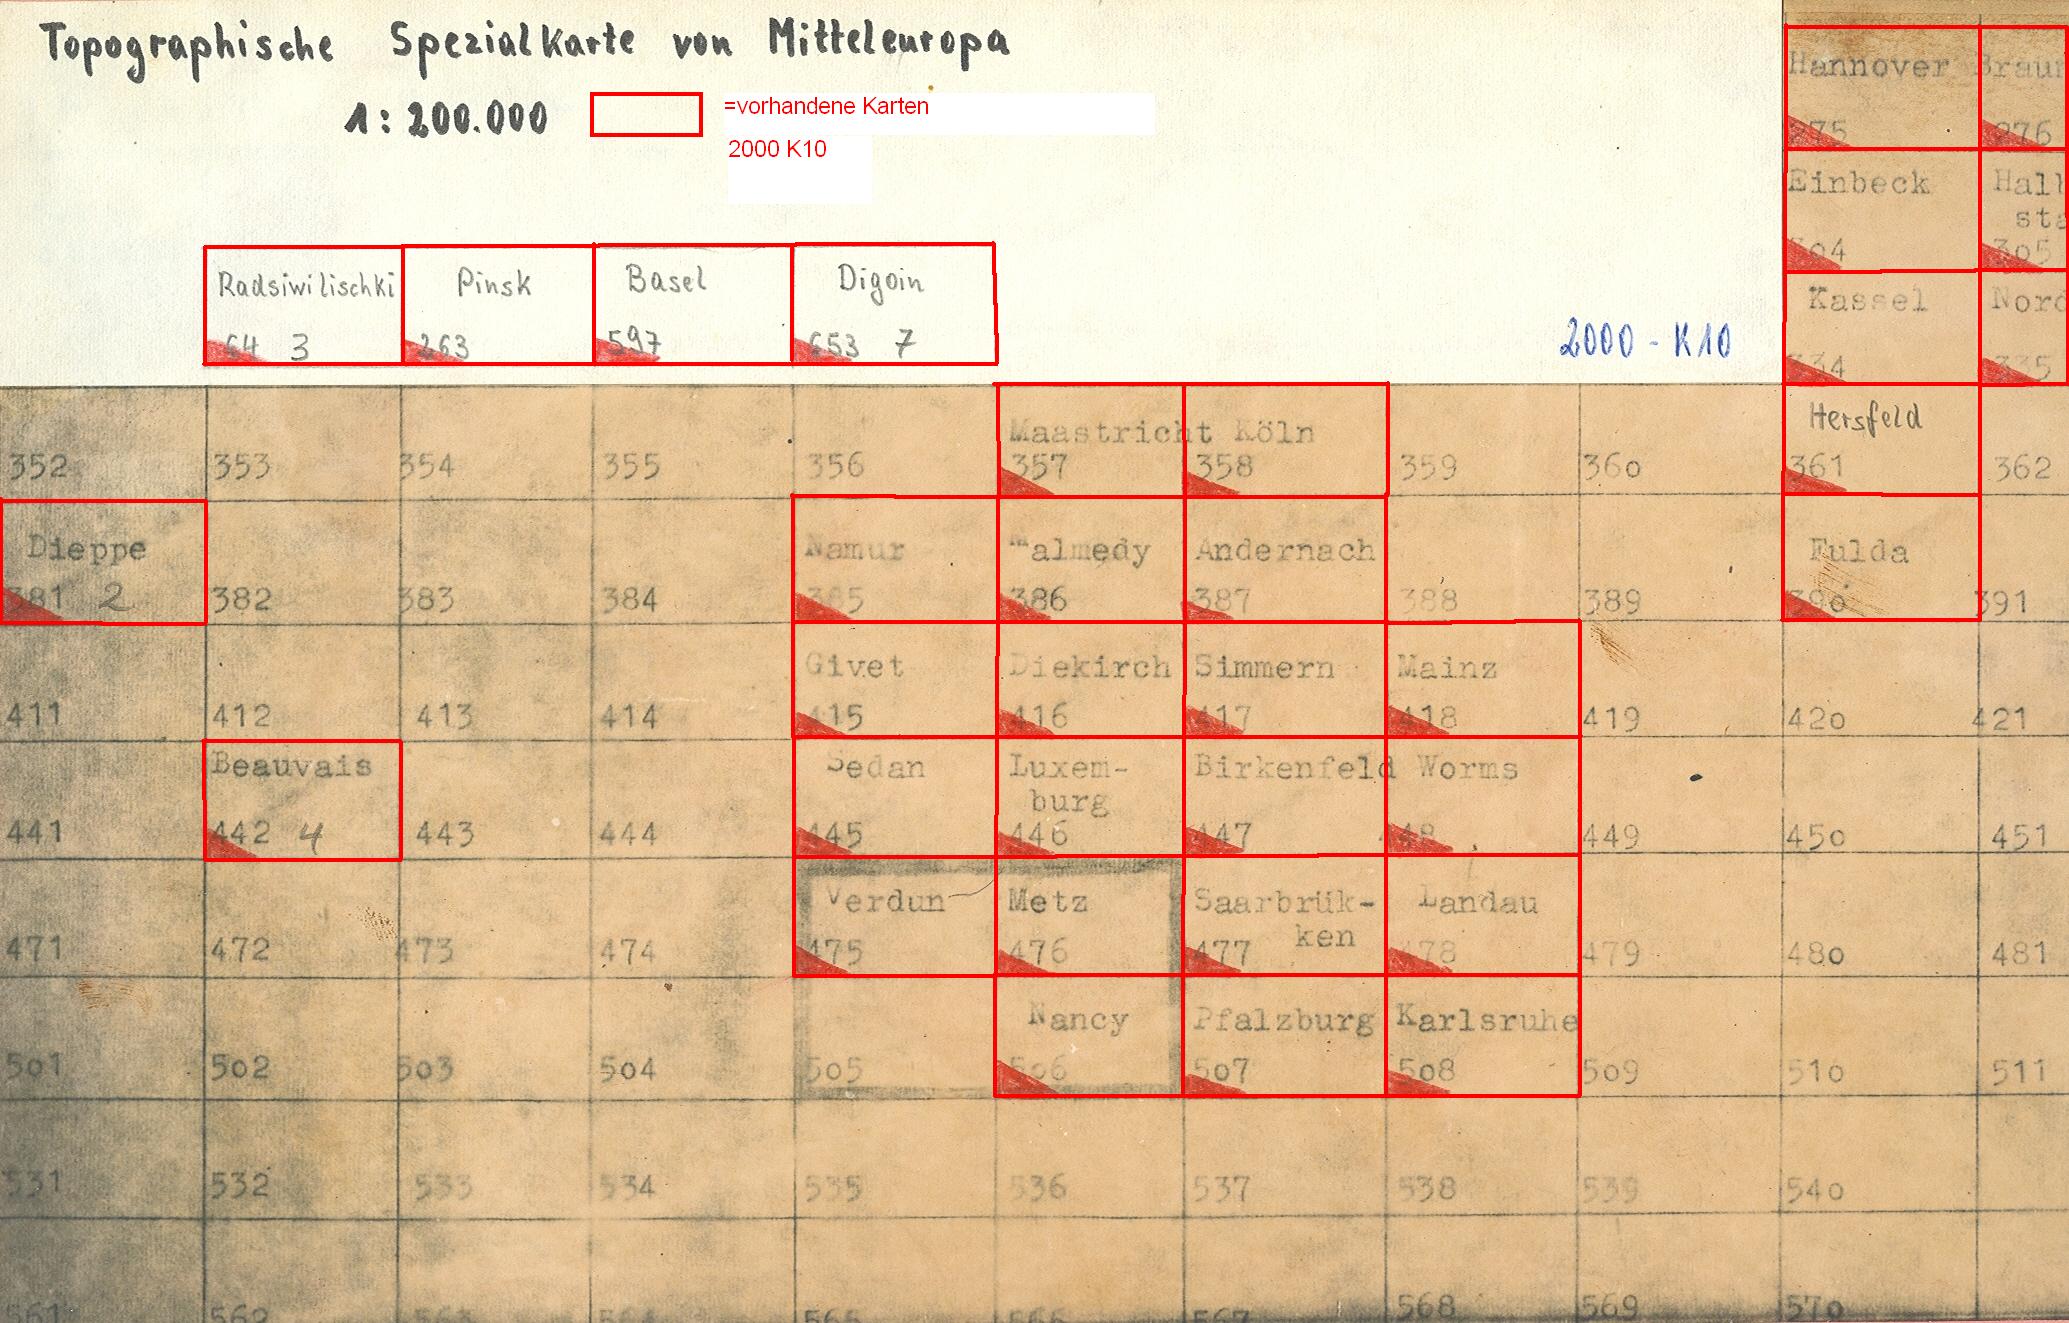 Topographische Spezialkarte von Mitteleuropa
1:200.000
=vorhandene Karten
2000 K10
Hannover
275
276
Einbeck
304
305
Kassel
334
335
Radsiwilischki
64 3
Pinsk
263
Basel
597
Digoin
653 7
2000 - K10
Hersfeld
Maastricht Köln
352 353 354 355 356 357 358 359 360 361 362
Dieppe Namur Malmedy Andernach Fulda
381 2 382 383 384 385 386 387 388 389 390 391
Givet Diekirch Simmern Mainz
411 412 413 414 415 416 417 418 419 420 421
Beauvais Sedan Luxem-
burg
Birkenfeld Worms
441 442 4 443 444 445 446 447 448 449 450 451
Verdun Metz Saarbrük-
ken
Landau
471 472 473 474 475 476 477 478 479 480 481
Nancy Pfalzburg Karlsruhe
501 502 503 504 505 506 507 508 509 510 511
531 532 533 534 535 536 537 538 539 540
561 562 563 564 565 566 567 568 569 570